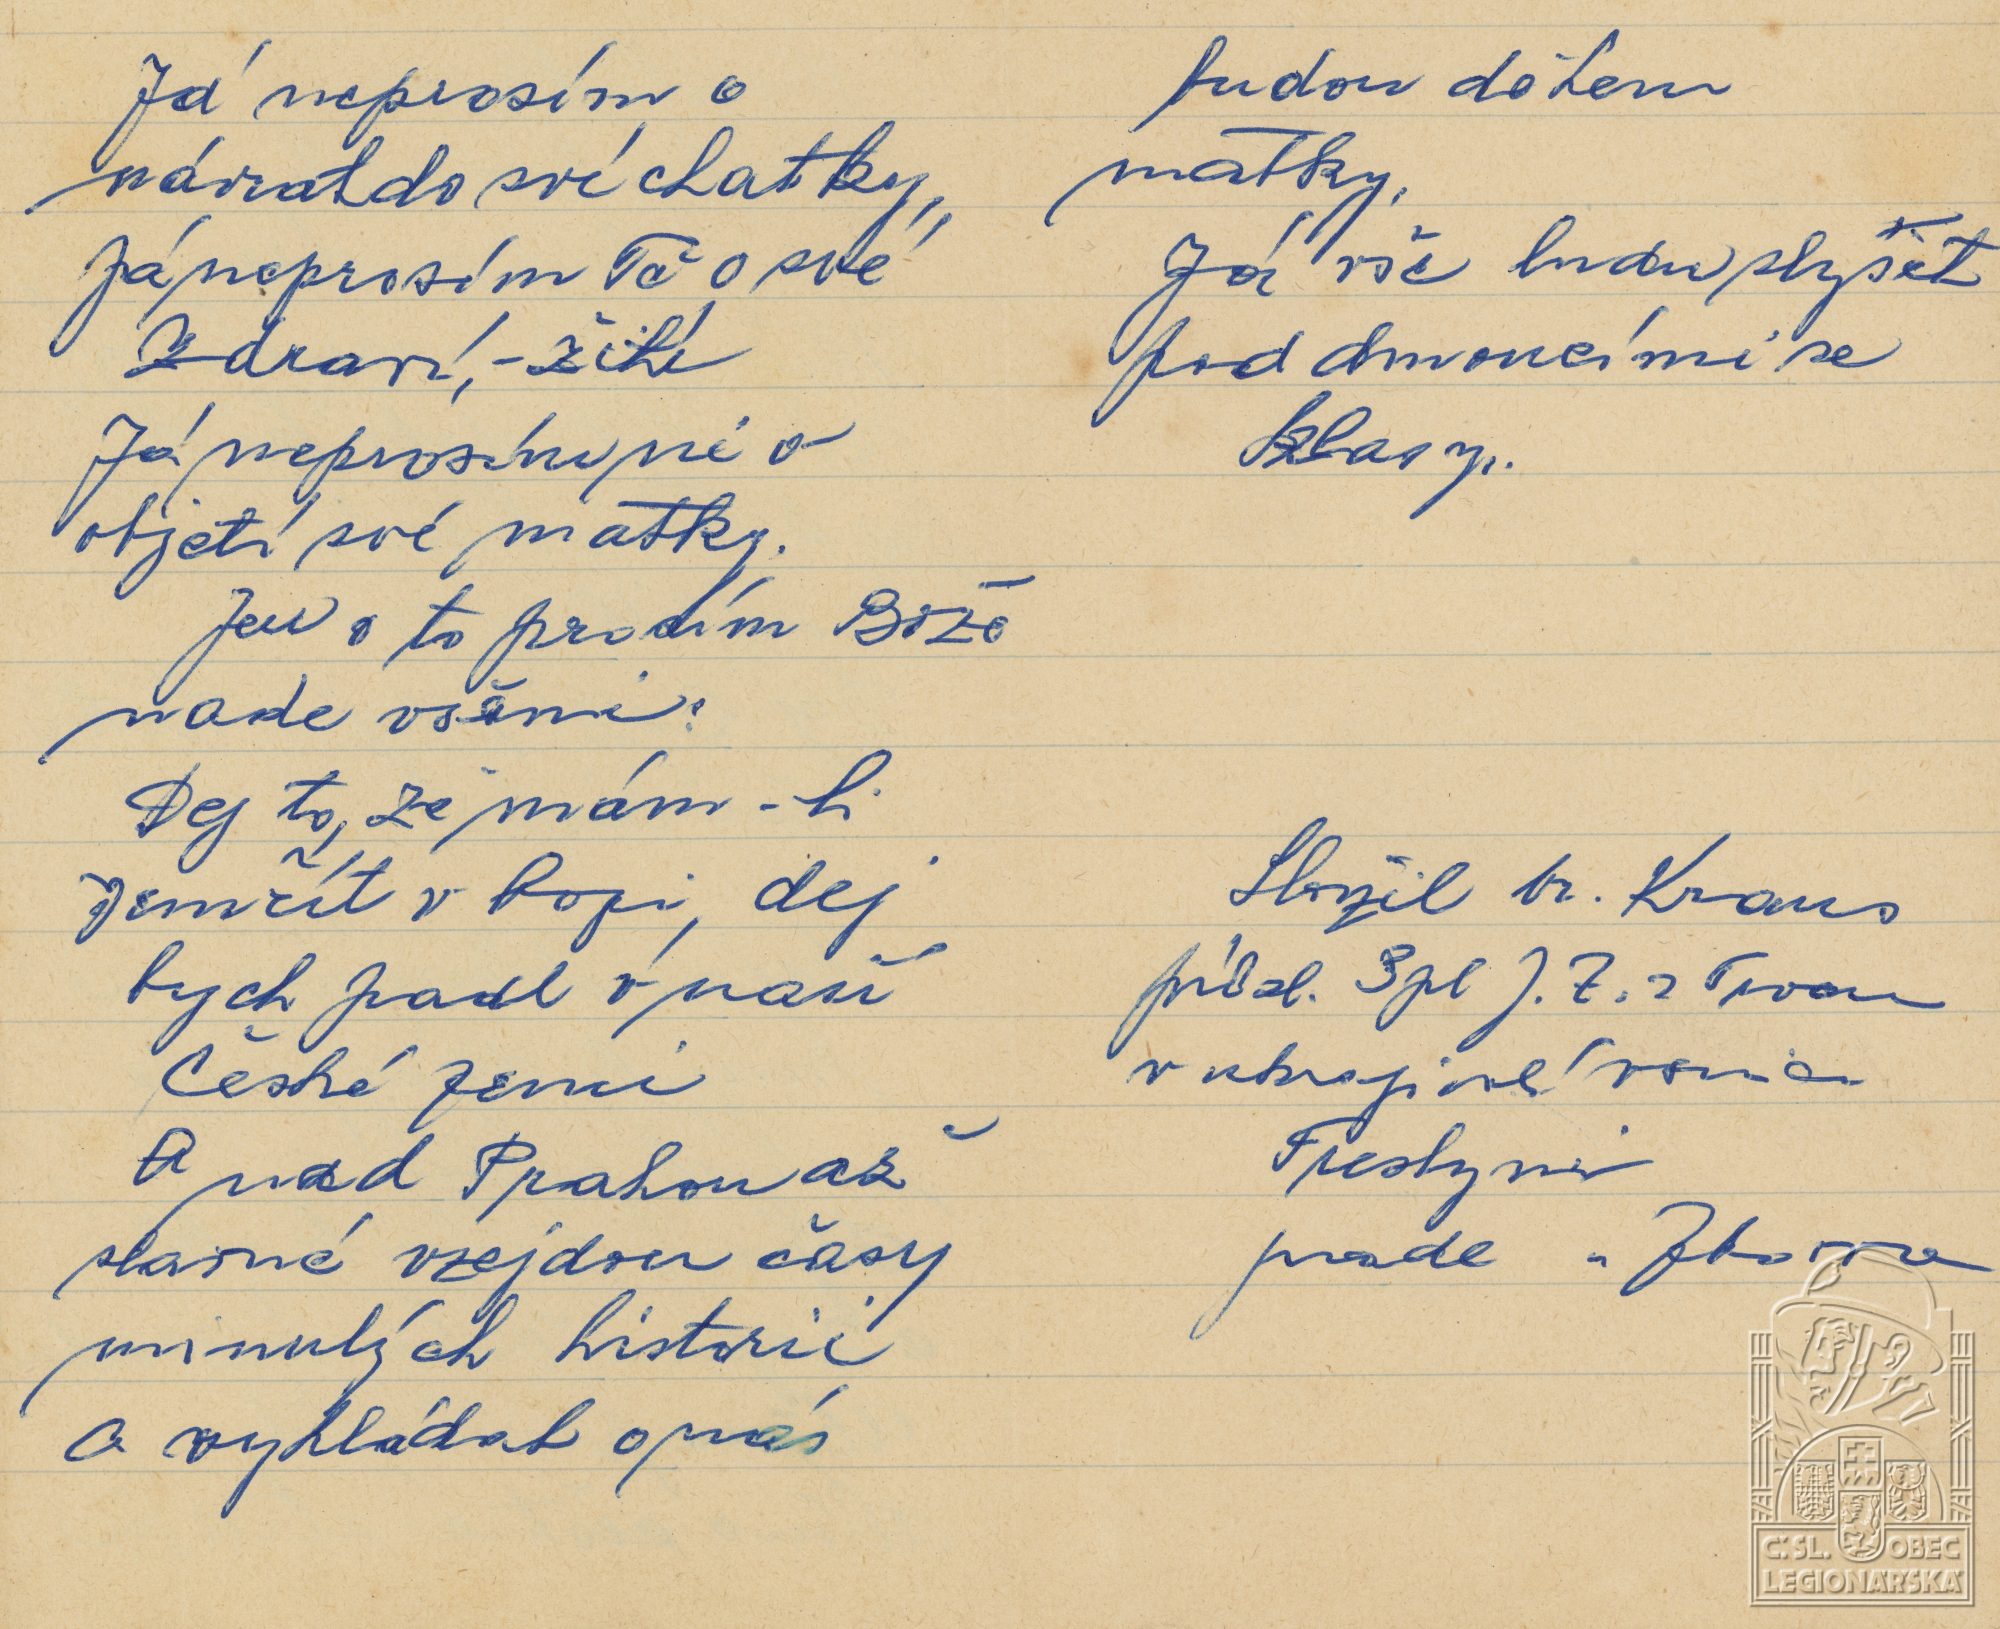 Já neprosím o
návrat do své chatky,
Já neprosím Tě o své
Zdraví, - žití
Já neprosím ni o
objetí své matky.
Jen o to prosím Bože
nade všemi:
Dej to, že mám-li
zemřít v boji, dej
bych padl v naší
České zemi
A nad Prahou až
slavné vzejdou časy
minulých historií
a vykládat o nás
budou dětem
matky.
Já vše budu slyšet
pod dmoucími se
klasy.
Složil br. Kraus
přísl. 3 pl J. Z. z Trou
v ukrajinské vesnici
nade Zborova
Č.SL. OBEC
LEGIONÁŘSKÁ